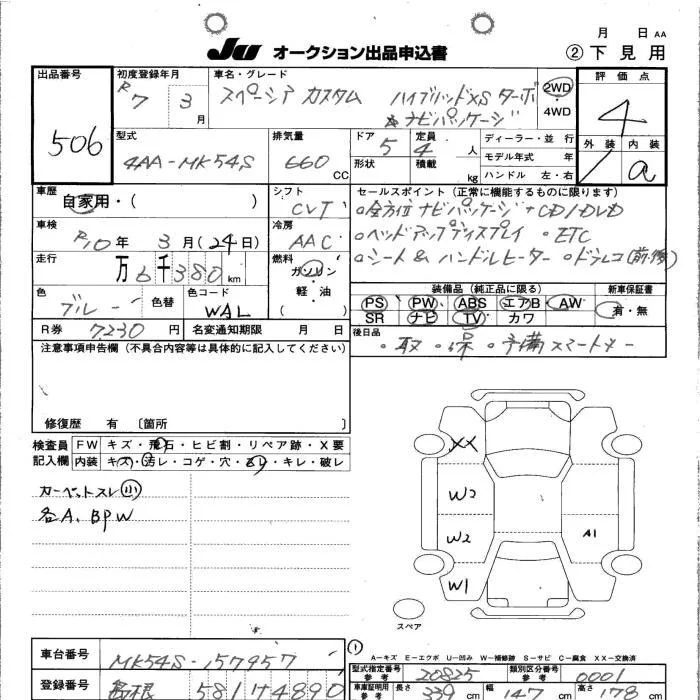 月 日 AA
JU オークション出品申込書 ②下見用
出品番号 506
初度登録年月 R7 3月
車名・グレード スペーシア カスタム ハイブリッドXS ターボ
ナビパッケージ
2WD
4WD
評価点 4
外装 内装 a
型式 4AA-MK54S
排気量 660 CC
ドア 5
形状
定員 4 人
積載 kg
ディーラー・並行
モデル年式 年
ハンドル 左・右
車歴 自家用・( )
シフト CVT
車検 R10年 3月(24日)
冷房 AAC
走行 万6千380km
燃料 ガソリン
軽油
( )
色 ブルー
色替
色コード WAL
R券 7230円
名変通知期限 月 日
セールスポイント(正常に機能するものに限ります)
○全方位ナビパッケージ+CD/DVD
○ヘッドアップディスプレイ ○ETC
○シート&ハンドルヒーター ○ドラレコ(前・後)
装備品(純正品に限る) 新車保証書
PS PW ABS エアB AW 有・無
SR ナビ TV カワ
後日品 ・取 ・保 ・予備スマートキー
注意事項申告欄(不具合内容等は具体的に記入してください)
修復歴 有〔箇所 〕
検査員記入欄
FW キズ・飛石・ヒビ割・リペア跡・X要
内装 キズ・汚レ・コゲ・穴・スレ・キレ・破レ
カーペットスレ小
各A、BPW
XX
W2
W2
W1
A1
スペア
A-キズ E-エクボ U-凹み W-補修跡 S-サビ C-腐食 XX-交換済
車台番号 MK54S-157957
登録番号 島根 581 4890
①
型式指定番号 参考 20825
類別区分番号 参考 0001
車庫証明用 参考 長さ 339cm 幅 147cm 高さ 178cm